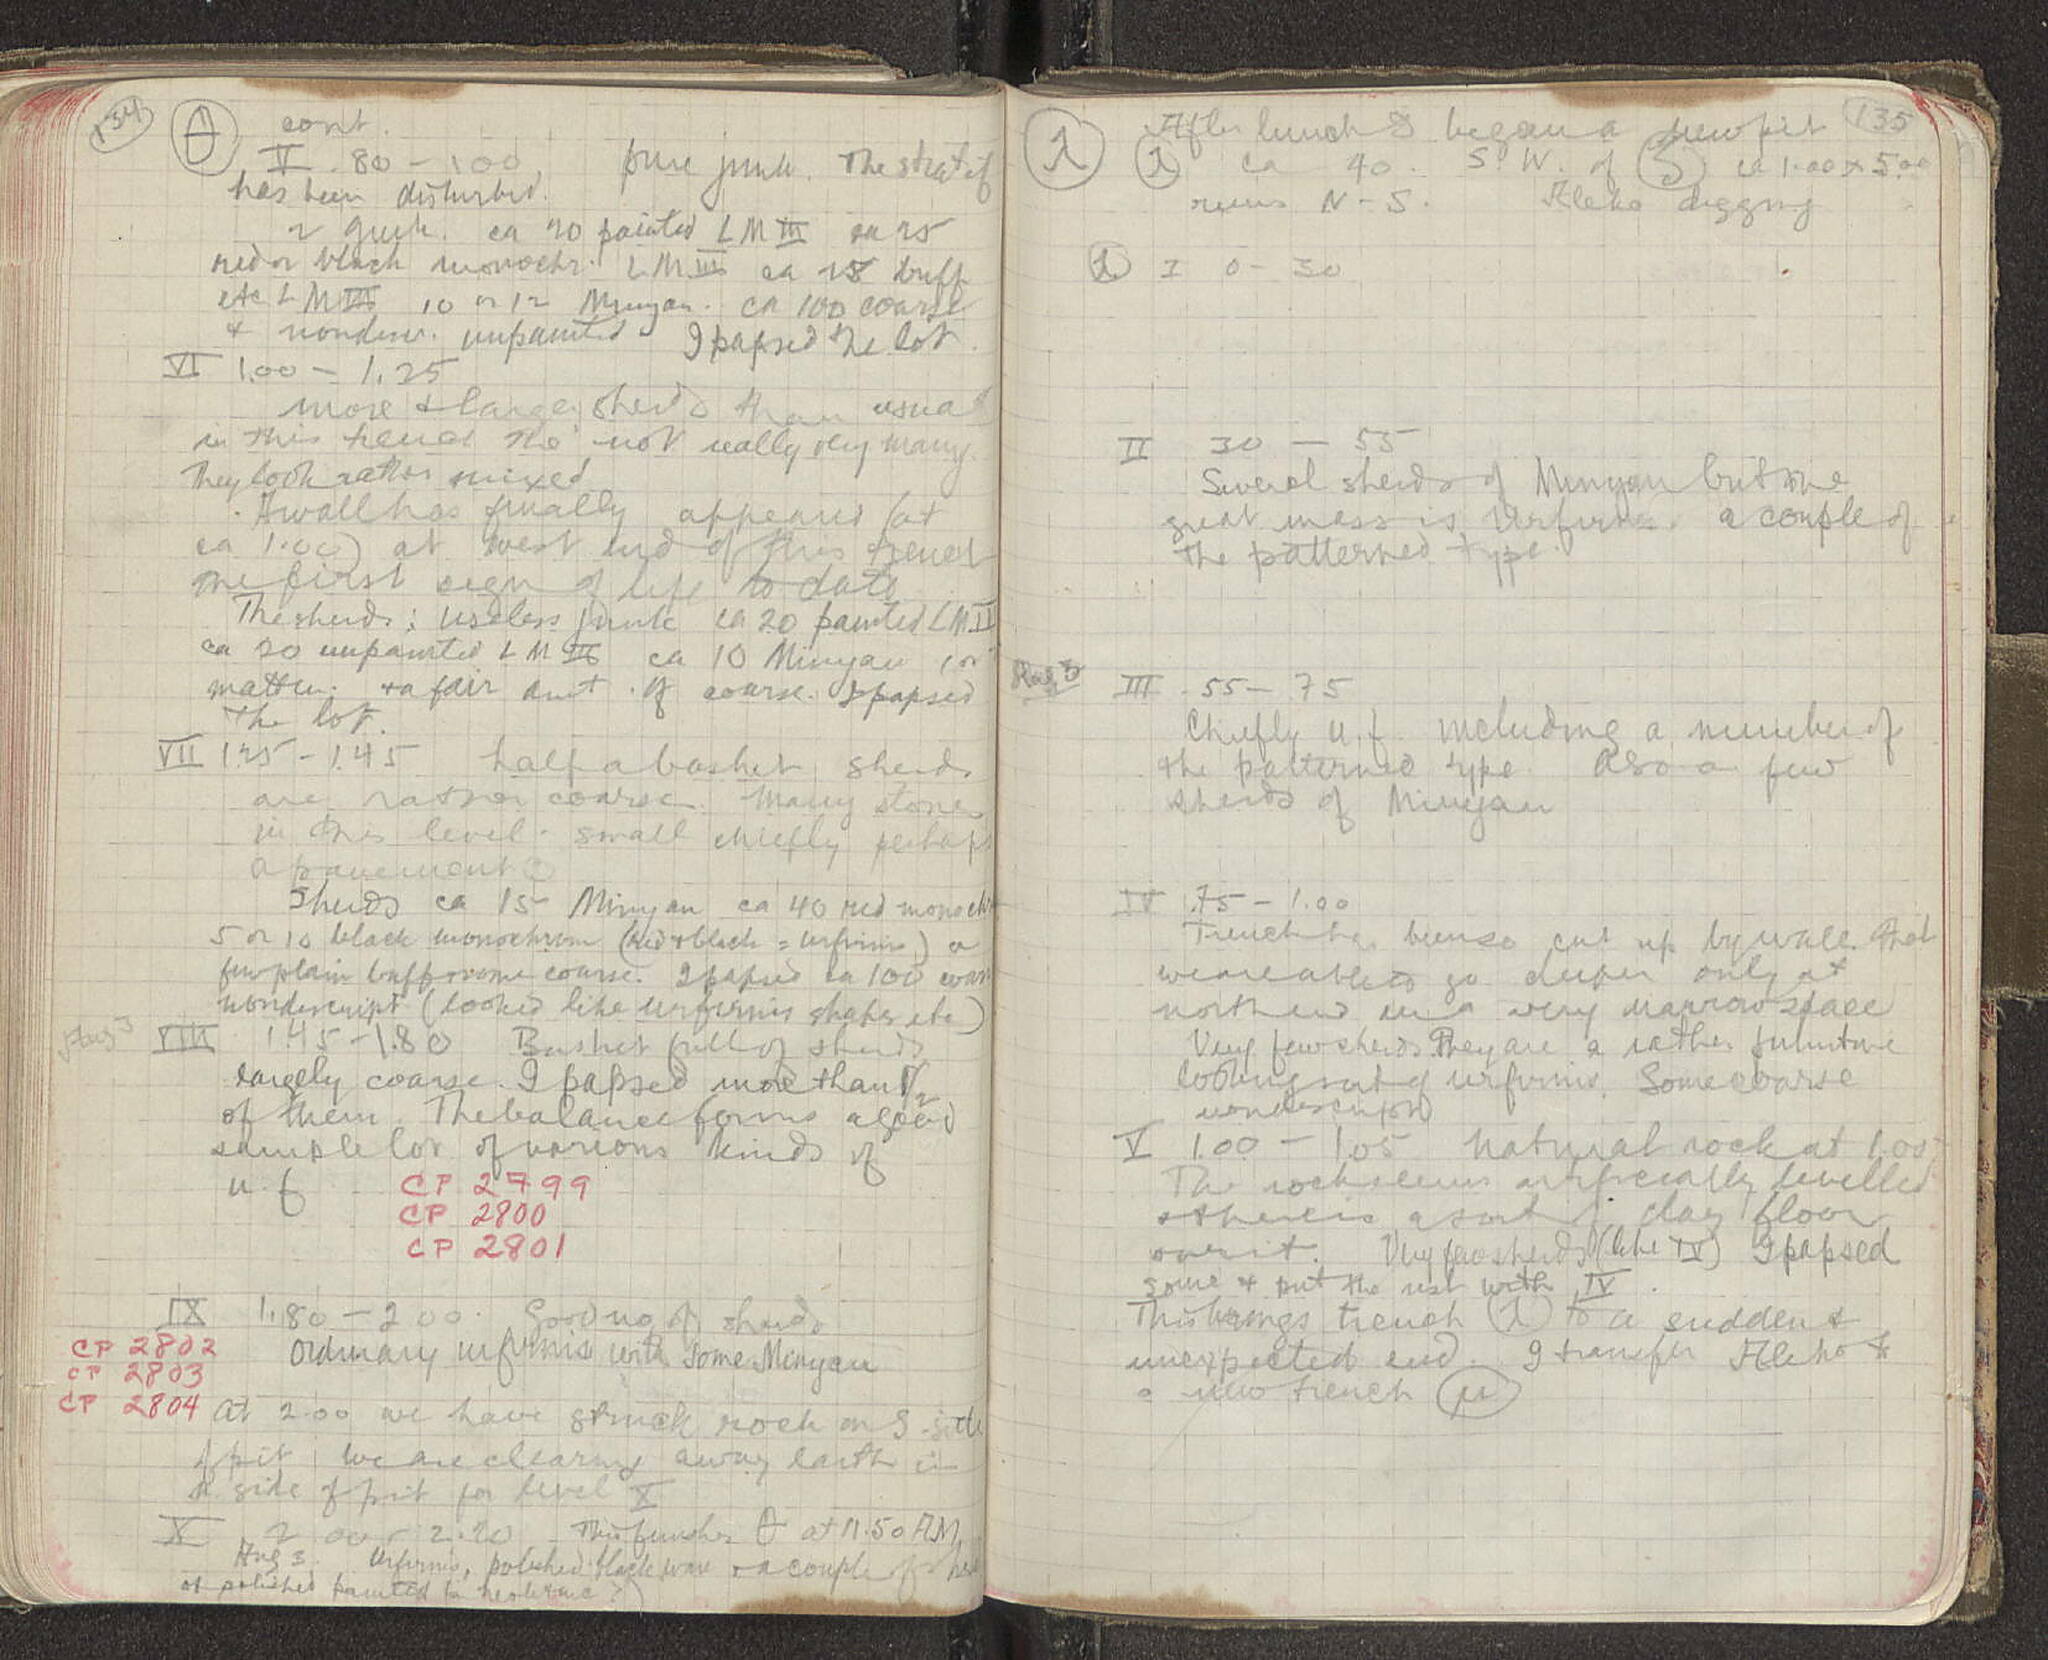 134 θ cont.
V .80 - 1.00 pure junk. The stratif
has been disturbed.
2 Greek. ca 20 painted LM III ca 25
red or black monochr. LM III ca 15 buff
etc LM III 10 or 12 Minyan. ca 100 coarse
& nondescr. unpainted I papsed the lot.
VI 1.00 - 1.25
more & larger sherds than usual
in this trench tho' not really very many.
They look rather mixed
A wall has finally appeared (at
ca 1.00) at west end of this trench
the first sign of life to date
The sherds: useless junk ca 20 painted LM III
ca 20 unpainted LM III ca 10 Minyan
matt. & a fair amt. of coarse. I papsed
the lot.
VII 1.25 - 1.45 half a basket sherds
are rather coarse. Many stones
in this level. small chiefly perhaps
a pavement?
Sherds ca 15 Minyan ca 40 red monochr
5 or 10 black monochrom (red & black = urfirnis) a
few plain buff some coarse. I papsed ca 100 coarse
nondescript (looked like urfirnis shapes etc)
Aug 3 VIII 1.45 - 1.80 Basket full of sherds
largely coarse. I papsed more than 1/2
of them. The balance forms a good
sample lot of various kinds of
u.f. CP 2799
CP 2800
CP 2801
IX 1.80 - 2.00. Good no of sherds
CP 2802 Ordinary urfirnis with some Minyan
CP 2803
CP 2804 At 2.00 we have struck rock on S. side
of pit we are clearing away earth in
N. side of pit for level X
X 2.00 - 2.20 This finishes θ at 11.50 AM
Aug 3. Urfirnis, polished black ware & a couple of sherds
of polished painted (a neolithic?)
135
λ After lunch I began a new pit
λ ca 40. S.W. of ca 1.00 x 5.00
runs N-S. Aleko digging
λ I 0 - 30
II 30 - 55
Several sherds of Minyan but the
great mass is Urfirnis. a couple of
the patterned type.
Aug 3 III .55 - .75
Chiefly u.f. including a number of
the patterned type. Also a few
sherds of Minyan
IV .75 - 1.00
Trench has been so cut up by walls that
we are able to go deeper only at
north end in a very narrow space
Very few sherds. They are a rather primitive
looking sort of urfirnis. Some coarse
nondescript
V 1.00 - 1.05 natural rock at 1.05
The rock seems artificially levelled
& there is a sort of clay floor
over it. Very few sherds (like IV) I papsed
some & put the rest with IV.
This brings trench λ to a sudden &
unexpected end. I transfer Aleko to
a new trench μ